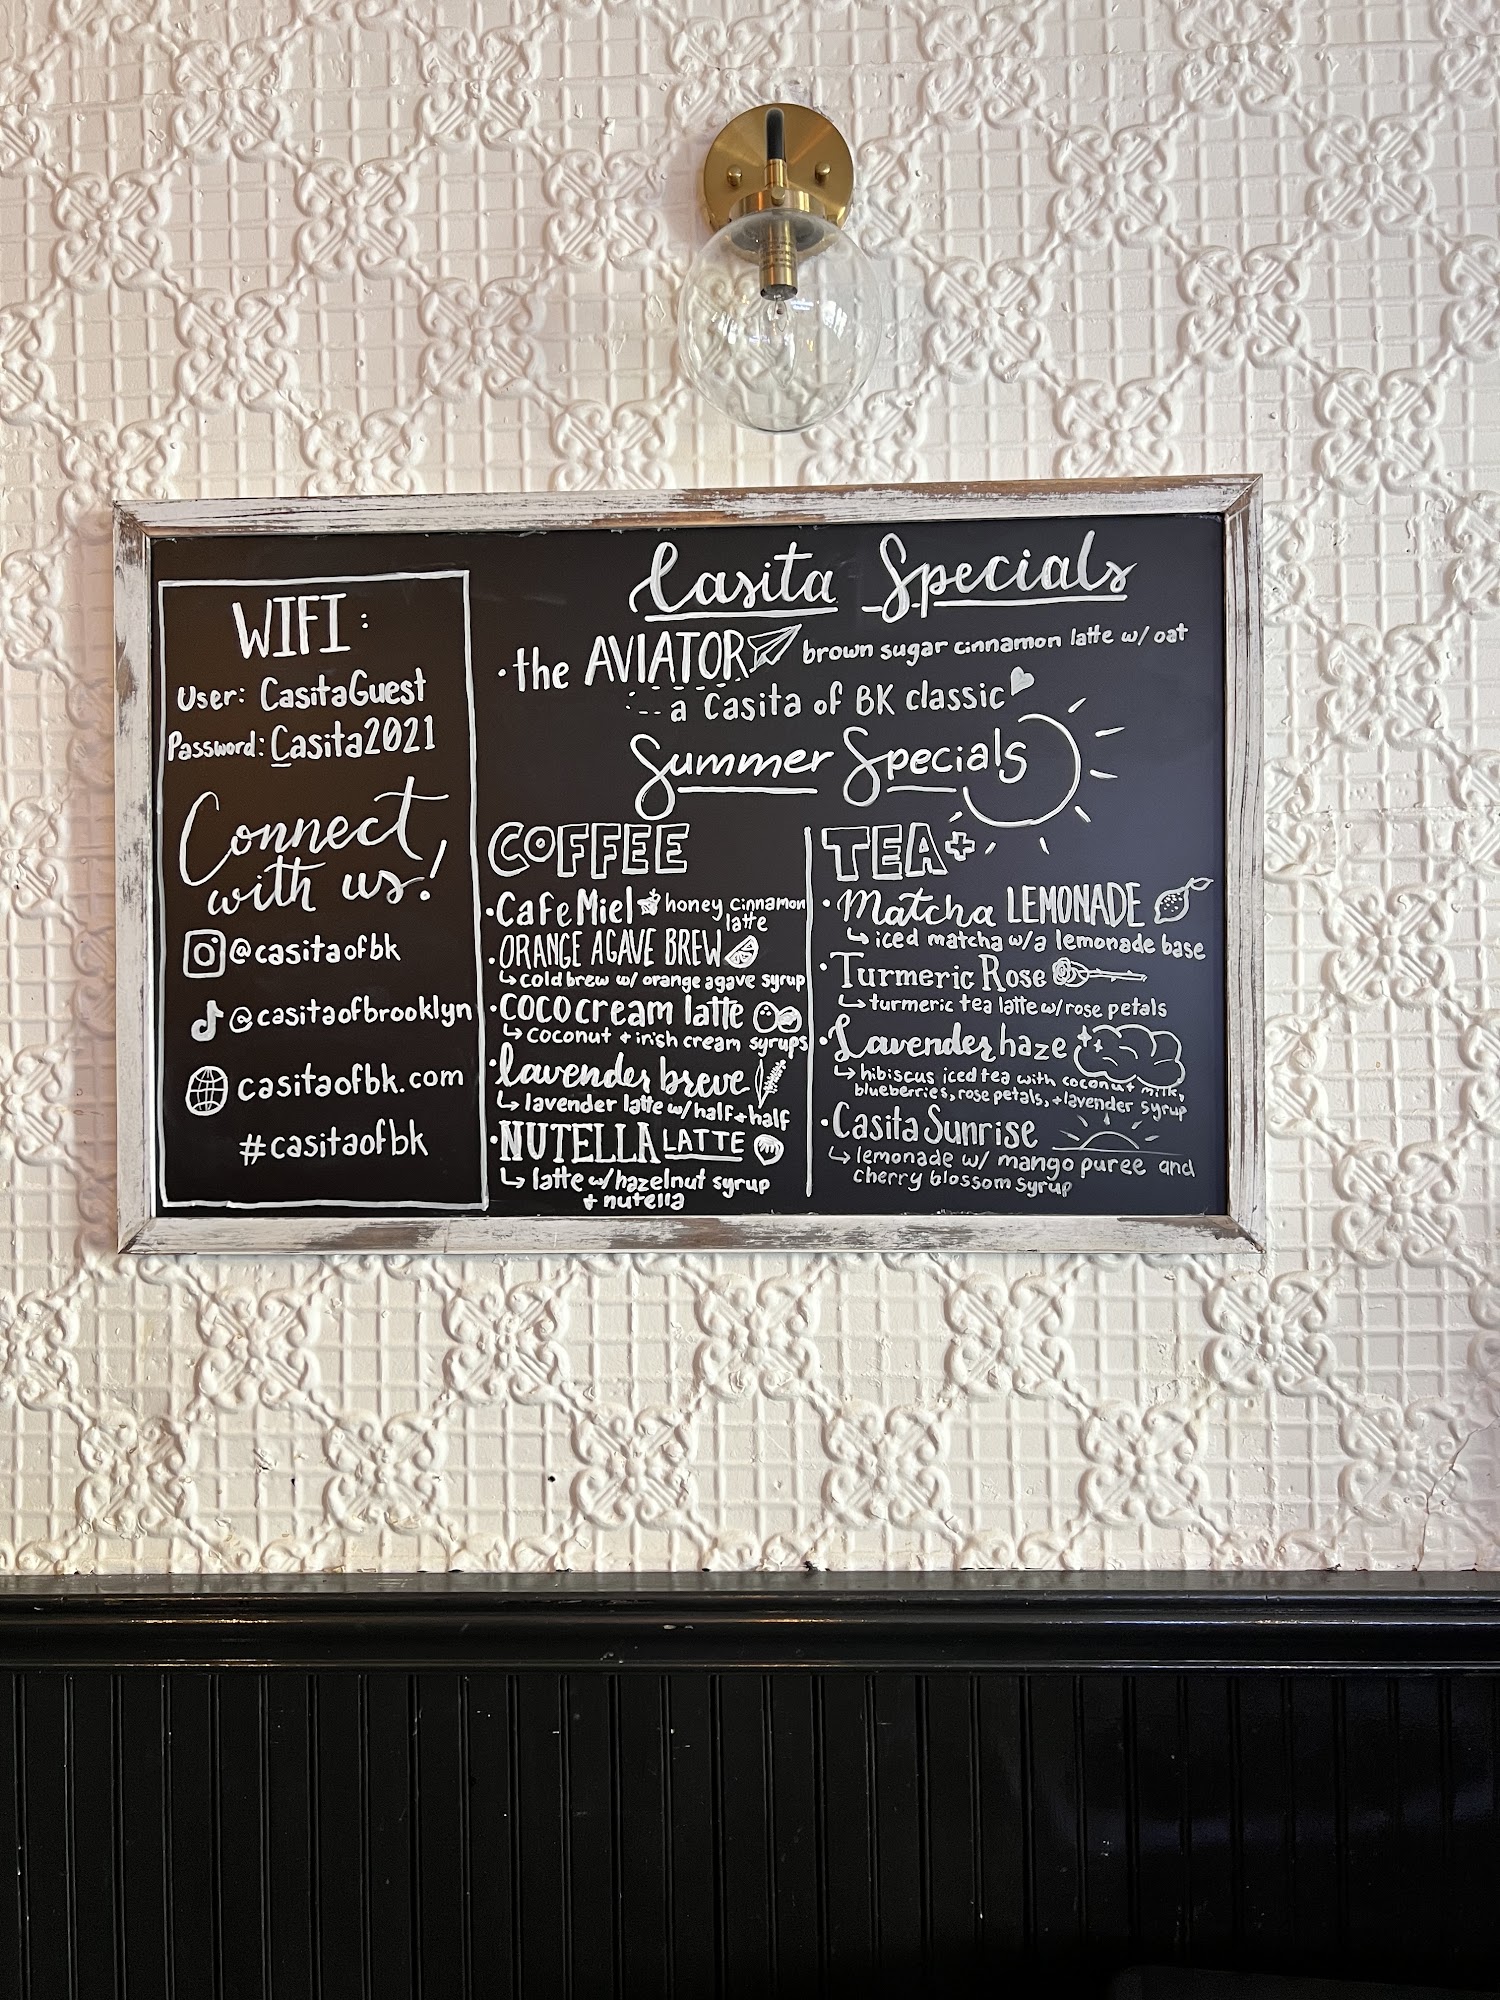 WIFI:
User: CasitaGuest
Password: Casita2021
Connect
with us!
@casitaofbk
@casitaofbrooklyn
casitaofbk.com
#casitaofbk
Casita Specials
•the AVIATOR brown sugar cinnamon latte w/ oat
a Casita of BK classic
Summer Specials
COFFEE
•Cafe Miel honey cinnamon
latte
•ORANGE AGAVE BREW
↳cold brew w/ orange agave syrup
•COCO CREAM latte
↳coconut + irish cream syrups
•lavender breve
↳lavender latte w/ half+half
•NUTELLA LATTE
↳latte w/ hazelnut syrup
+ nutella
TEA+
•Matcha LEMONADE
↳iced matcha w/a lemonade base
•Turmeric Rose
↳turmeric tea latte w/ rose petals
•Lavender haze
↳hibiscus iced tea with coconut milk,
blueberries, rose petals, + lavender syrup
•Casita Sunrise
↳lemonade w/ mango puree and
cherry blossom syrup